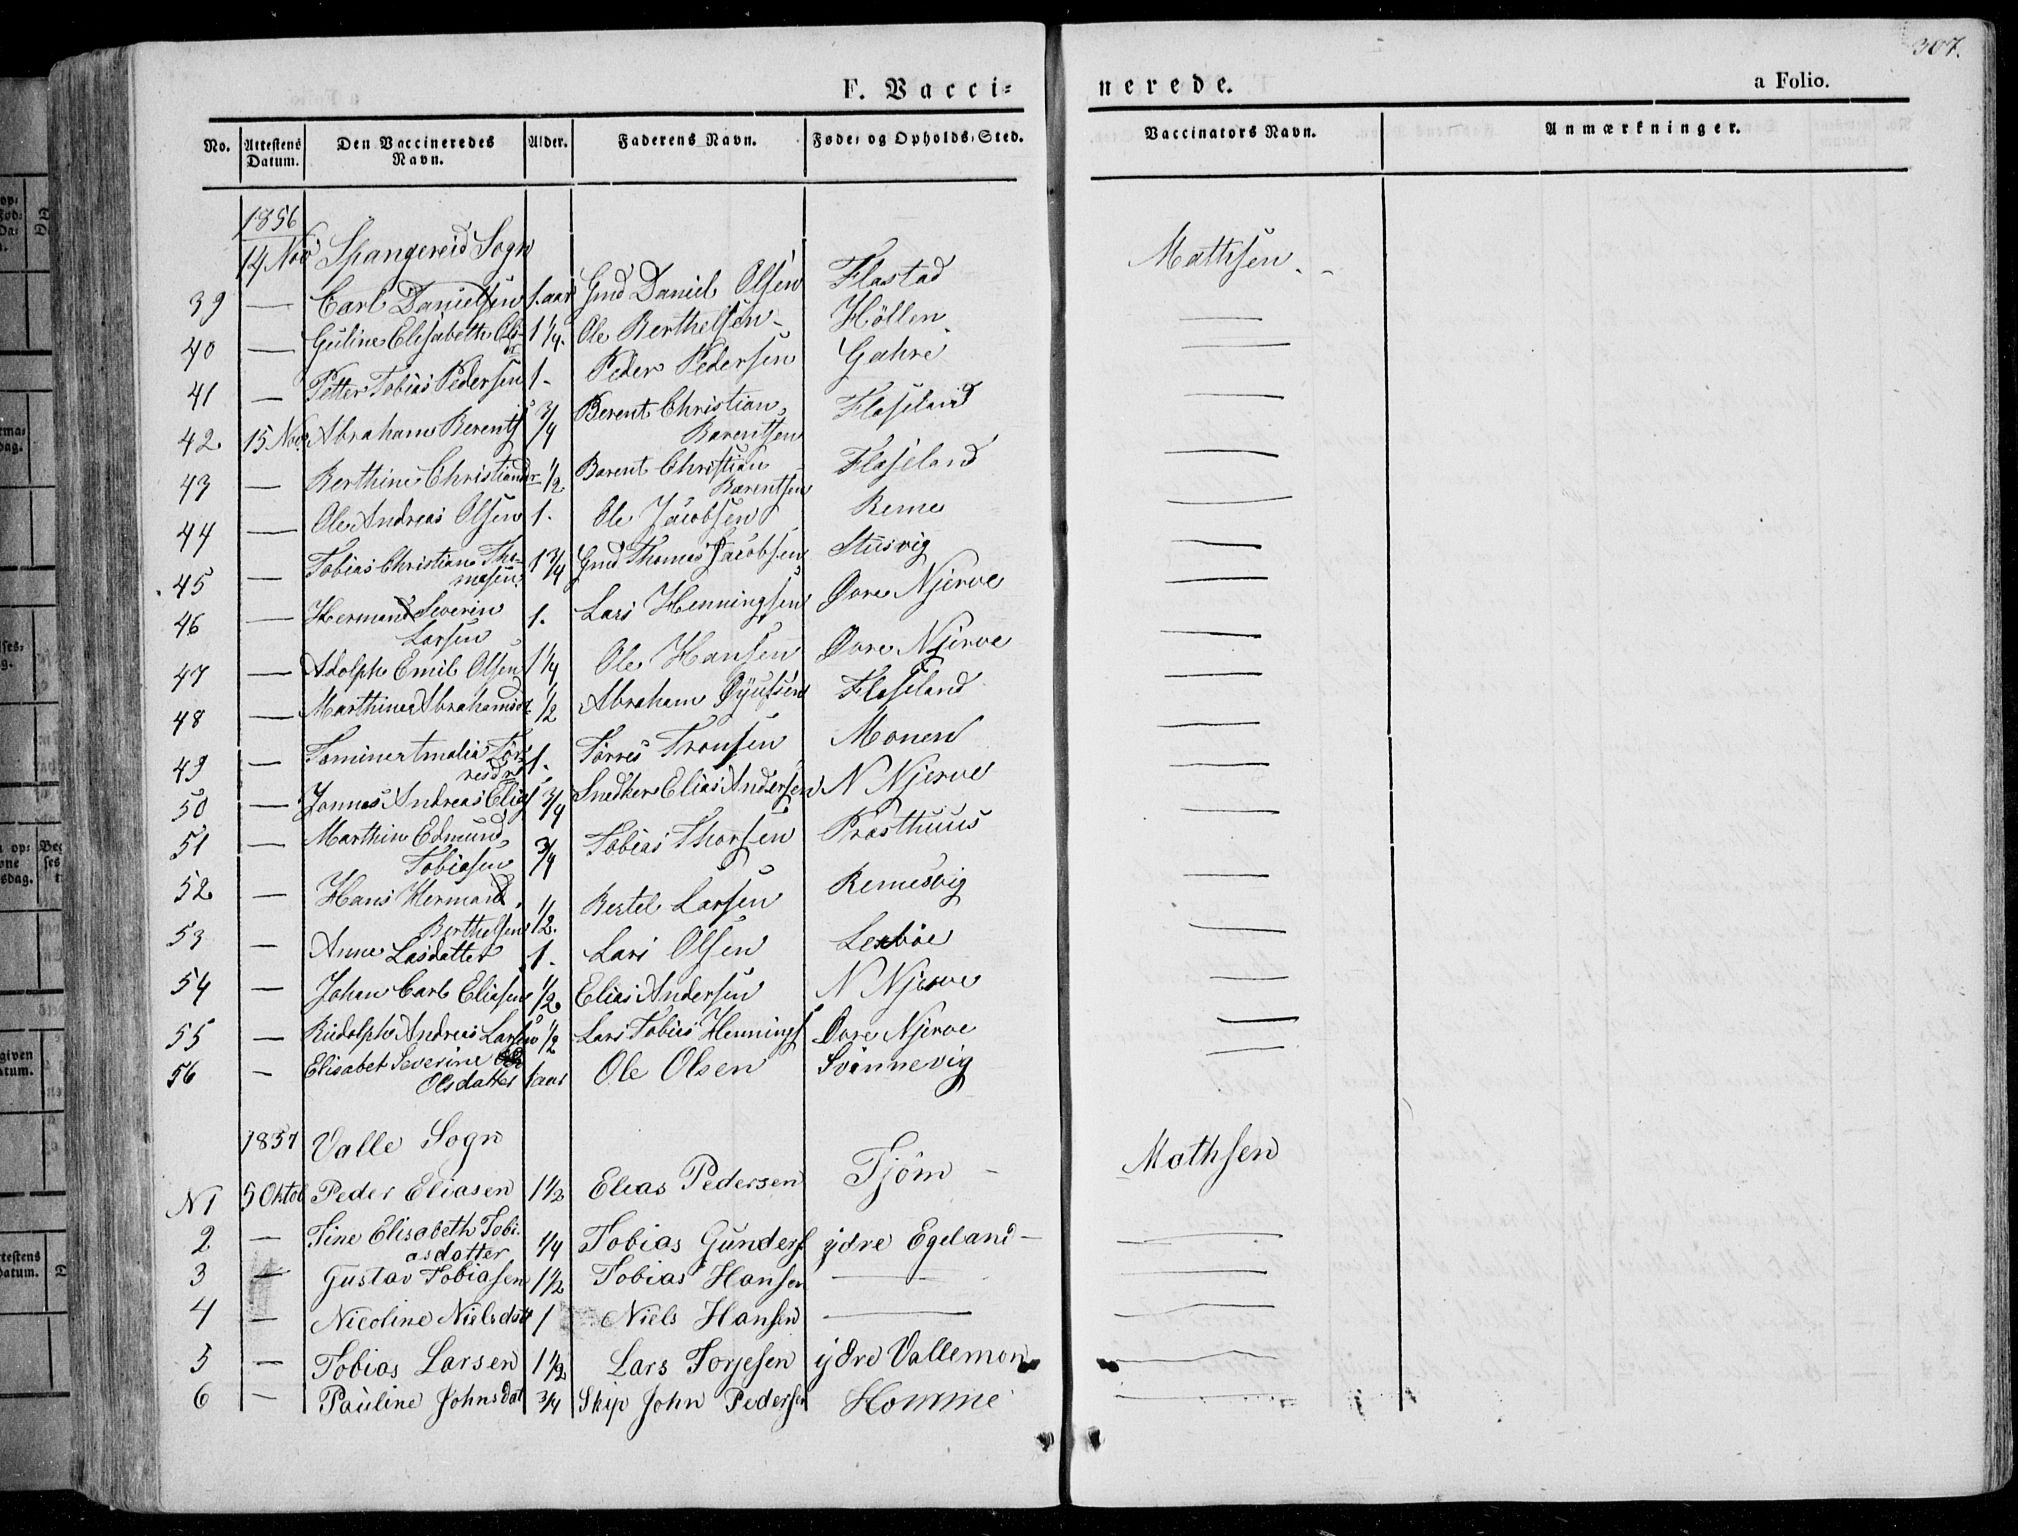 307.
F. Vacci=
nerede.
a Folio.
No. Attestens Datum. Den Vaccineredes Navn. Alder. Faderens Navn. Føde- og Opholds-Sted. Vaccinators Navn. Anmærkninger.
1856
14 Nov Spangereid Sogn Mathsen
39 — Carl Danielsen 1 aar Gmd Daniel Olsen Flastad —
40 — Guline Elisabeth Ols dr 1 1/4 Ole Berthelsen Höllen —
41 — Petter Tobias Pedersen 1 Peder Pedersen Gahre —
42. 15 Nov. Abraham Berents 3/4 Berent Christian Barentsen Flaseland —
43 — Berthine Christiandr 1/2 Barent Christian Barentsen Flaseland —
44 — Ole Andreas Olsen 1. Ole Jacobsen Reme —
45 — Tobias Christian Thomasen 1 3/4 Gmd Thomas Jacobsen Stusvig —
46 — Hermand Severin Larsen 1. Lars Henningsen Øvre Njerve —
47 — Adolph Emil Olsen 1 1/4 Ole Hansen Øvre Njerve —
48 — Marthine Abrahamsdt 1/2 Abraham Flaseland —
49 — Tomine Amalia Törresdr 1. Törres Tronsen Monen —
50 — Jonnas Andreas Elias 1 3/4 Snedker Elias Andersen N Njerve —
51 — Marthin Edmund Tobiasen 3/4 Tobias Thorsen Præsthuus —
52 — Hans Hermand Berthelsen 1/2. Bertel Larsen Remesvig —
53 — Anne Lasdatter 1. Lars Olsen —
54 — Johan Carl Eliasen 1/2 Elias Andersen N Njerve —
55 — Rudolph Andreas Larsen 1/2 Lars Tobias Hennings Øvre Njerve —
56 — Elisabet Severine Olsdatter 1 aar Ole Olsen Svinnevig —
1857 Valle Sogn
N 1 5 Oktob Peder Eliasen 1 1/2 Elias Pedersen Tjöm — Mathsen
2 — Tine Elisabeth Tobiasdatter 1/4 Tobias Gunders ydre Egeland —
3 — Gustav Tobiasen 1 1/2 Tobias Hansen — —
4 — Nicoline Nielsdat 1 Niels Hansen — —
5 — Tobias Larsen 1 1/2 Lars Torjesen ydre Vallemon —
6 — Pauline Johnsdat 3/4 Skip John Pedersen Homme —